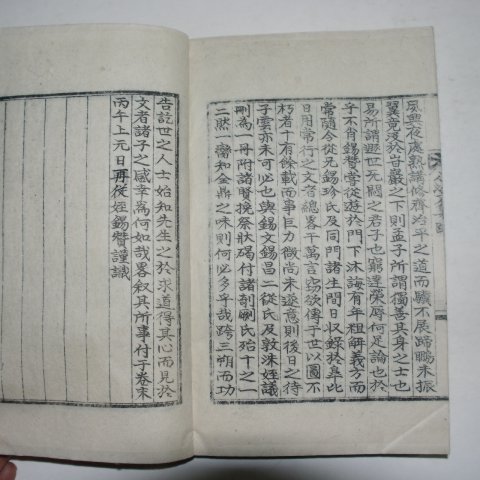 夙興夜處熟講修齊治平之道而願不展歸鵬未振
翼竟沒於岩巖之下則孟子所謂獨善其身之士也
易所謂遯世无悶之君子也窮達榮辱何足論也於
乎不肖錫贊嘗從遊於門下沐誨有年粗解義方而
嘗隨今從兄錫珍氏及同門諸生問日收錄於阜比
日用常行之文者總畧千萬言竊欲傳于世以圖不
朽者十有餘載而事巨力微尚未遂意則後日之待
子雲亦未可必也與錫文錫昌二從氏及敦洙姪議
刪為一冊附諸賢挽祭狀碣付諸剞劂氏拾十之一
二然一臠知全鼎之味則何必多乎哉跨三朔而功
告訖世之人士始知先生之於求道得其心而見於
文者諸子之感幸為何如哉畧叙其所事付于卷末
丙午上元日再從姪錫贊謹識